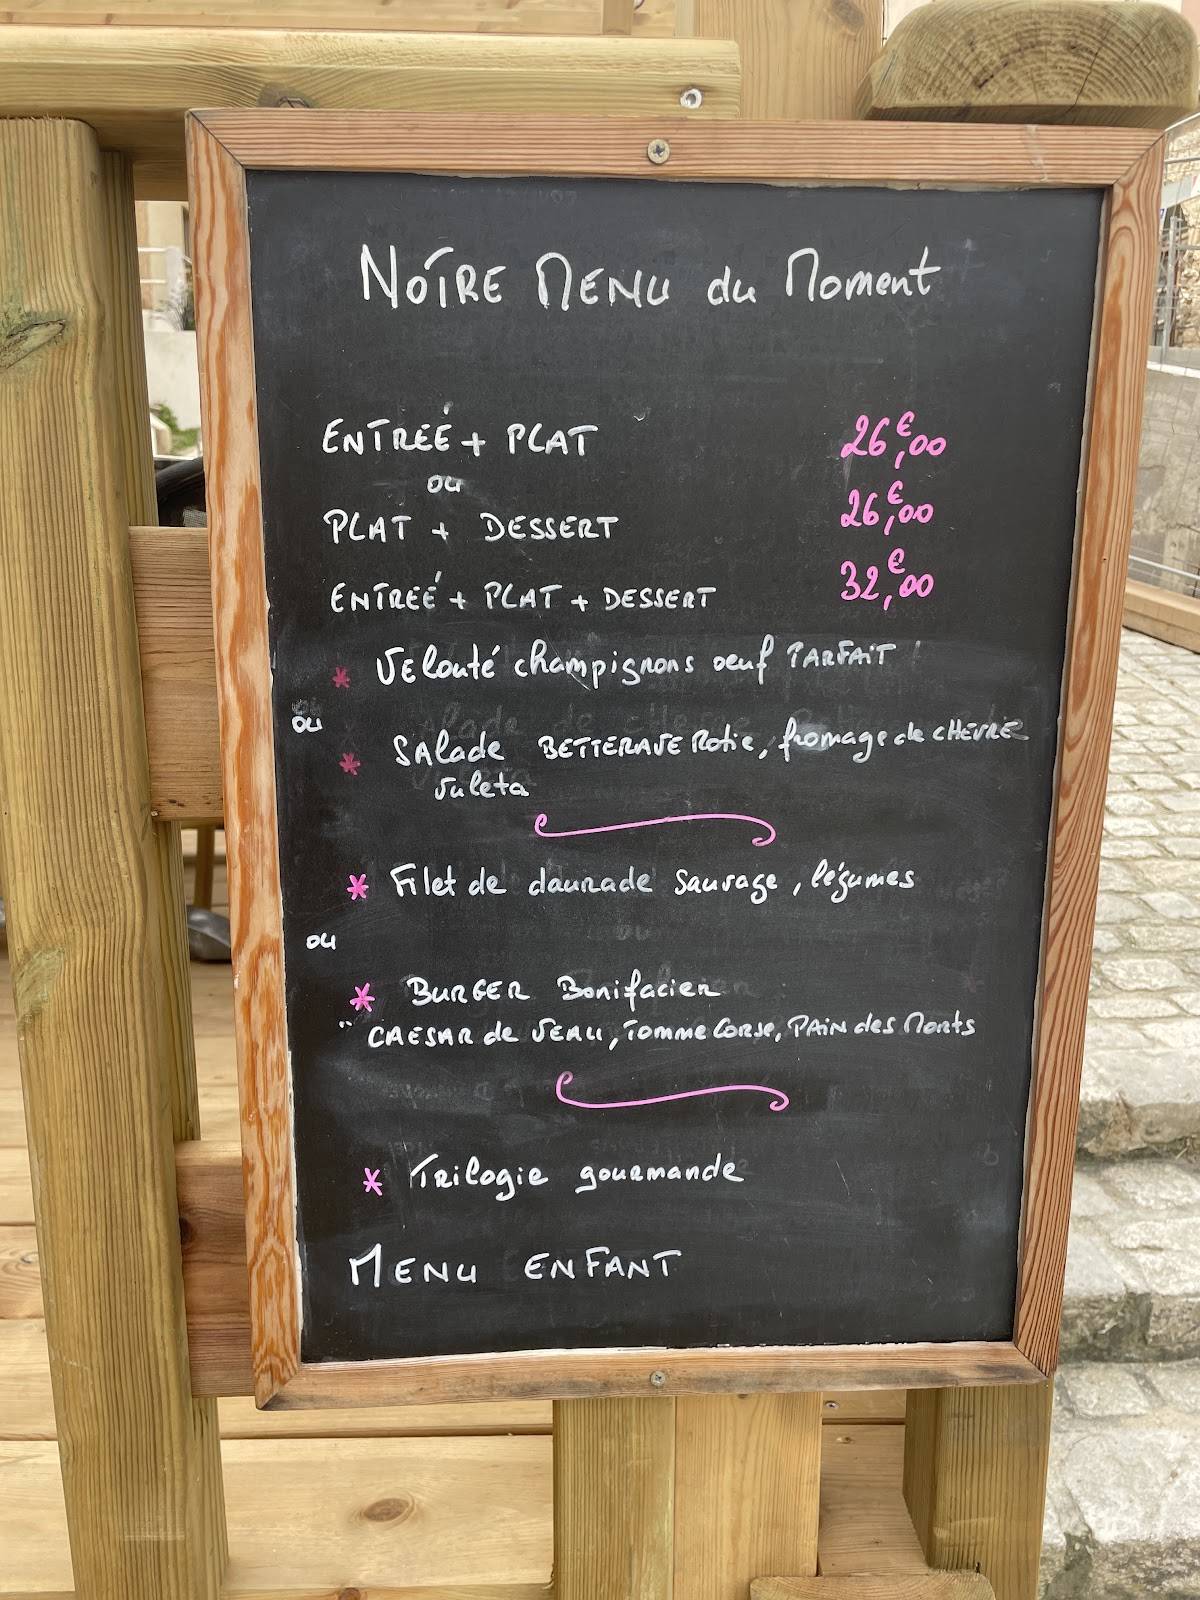 NOTRE MENU du Moment
ENTREÉ + PLAT 26€,00
ou
PLAT + DESSERT 26€,00
ENTREÉ + PLAT + DESSERT 32€,00
* VELouté champignons oeuf PARFAIT !
ou
* SAlade BETTERAVE Rotie, fromage de CHEVRE
Vuleta
* Filet de daurade Sauvage, légumes
ou
* BURGER Bonifacien
" CAESAR de VEAU, Tomme Corse, PAIN des Morts
* Trilogie gourmande
MENU ENFANT